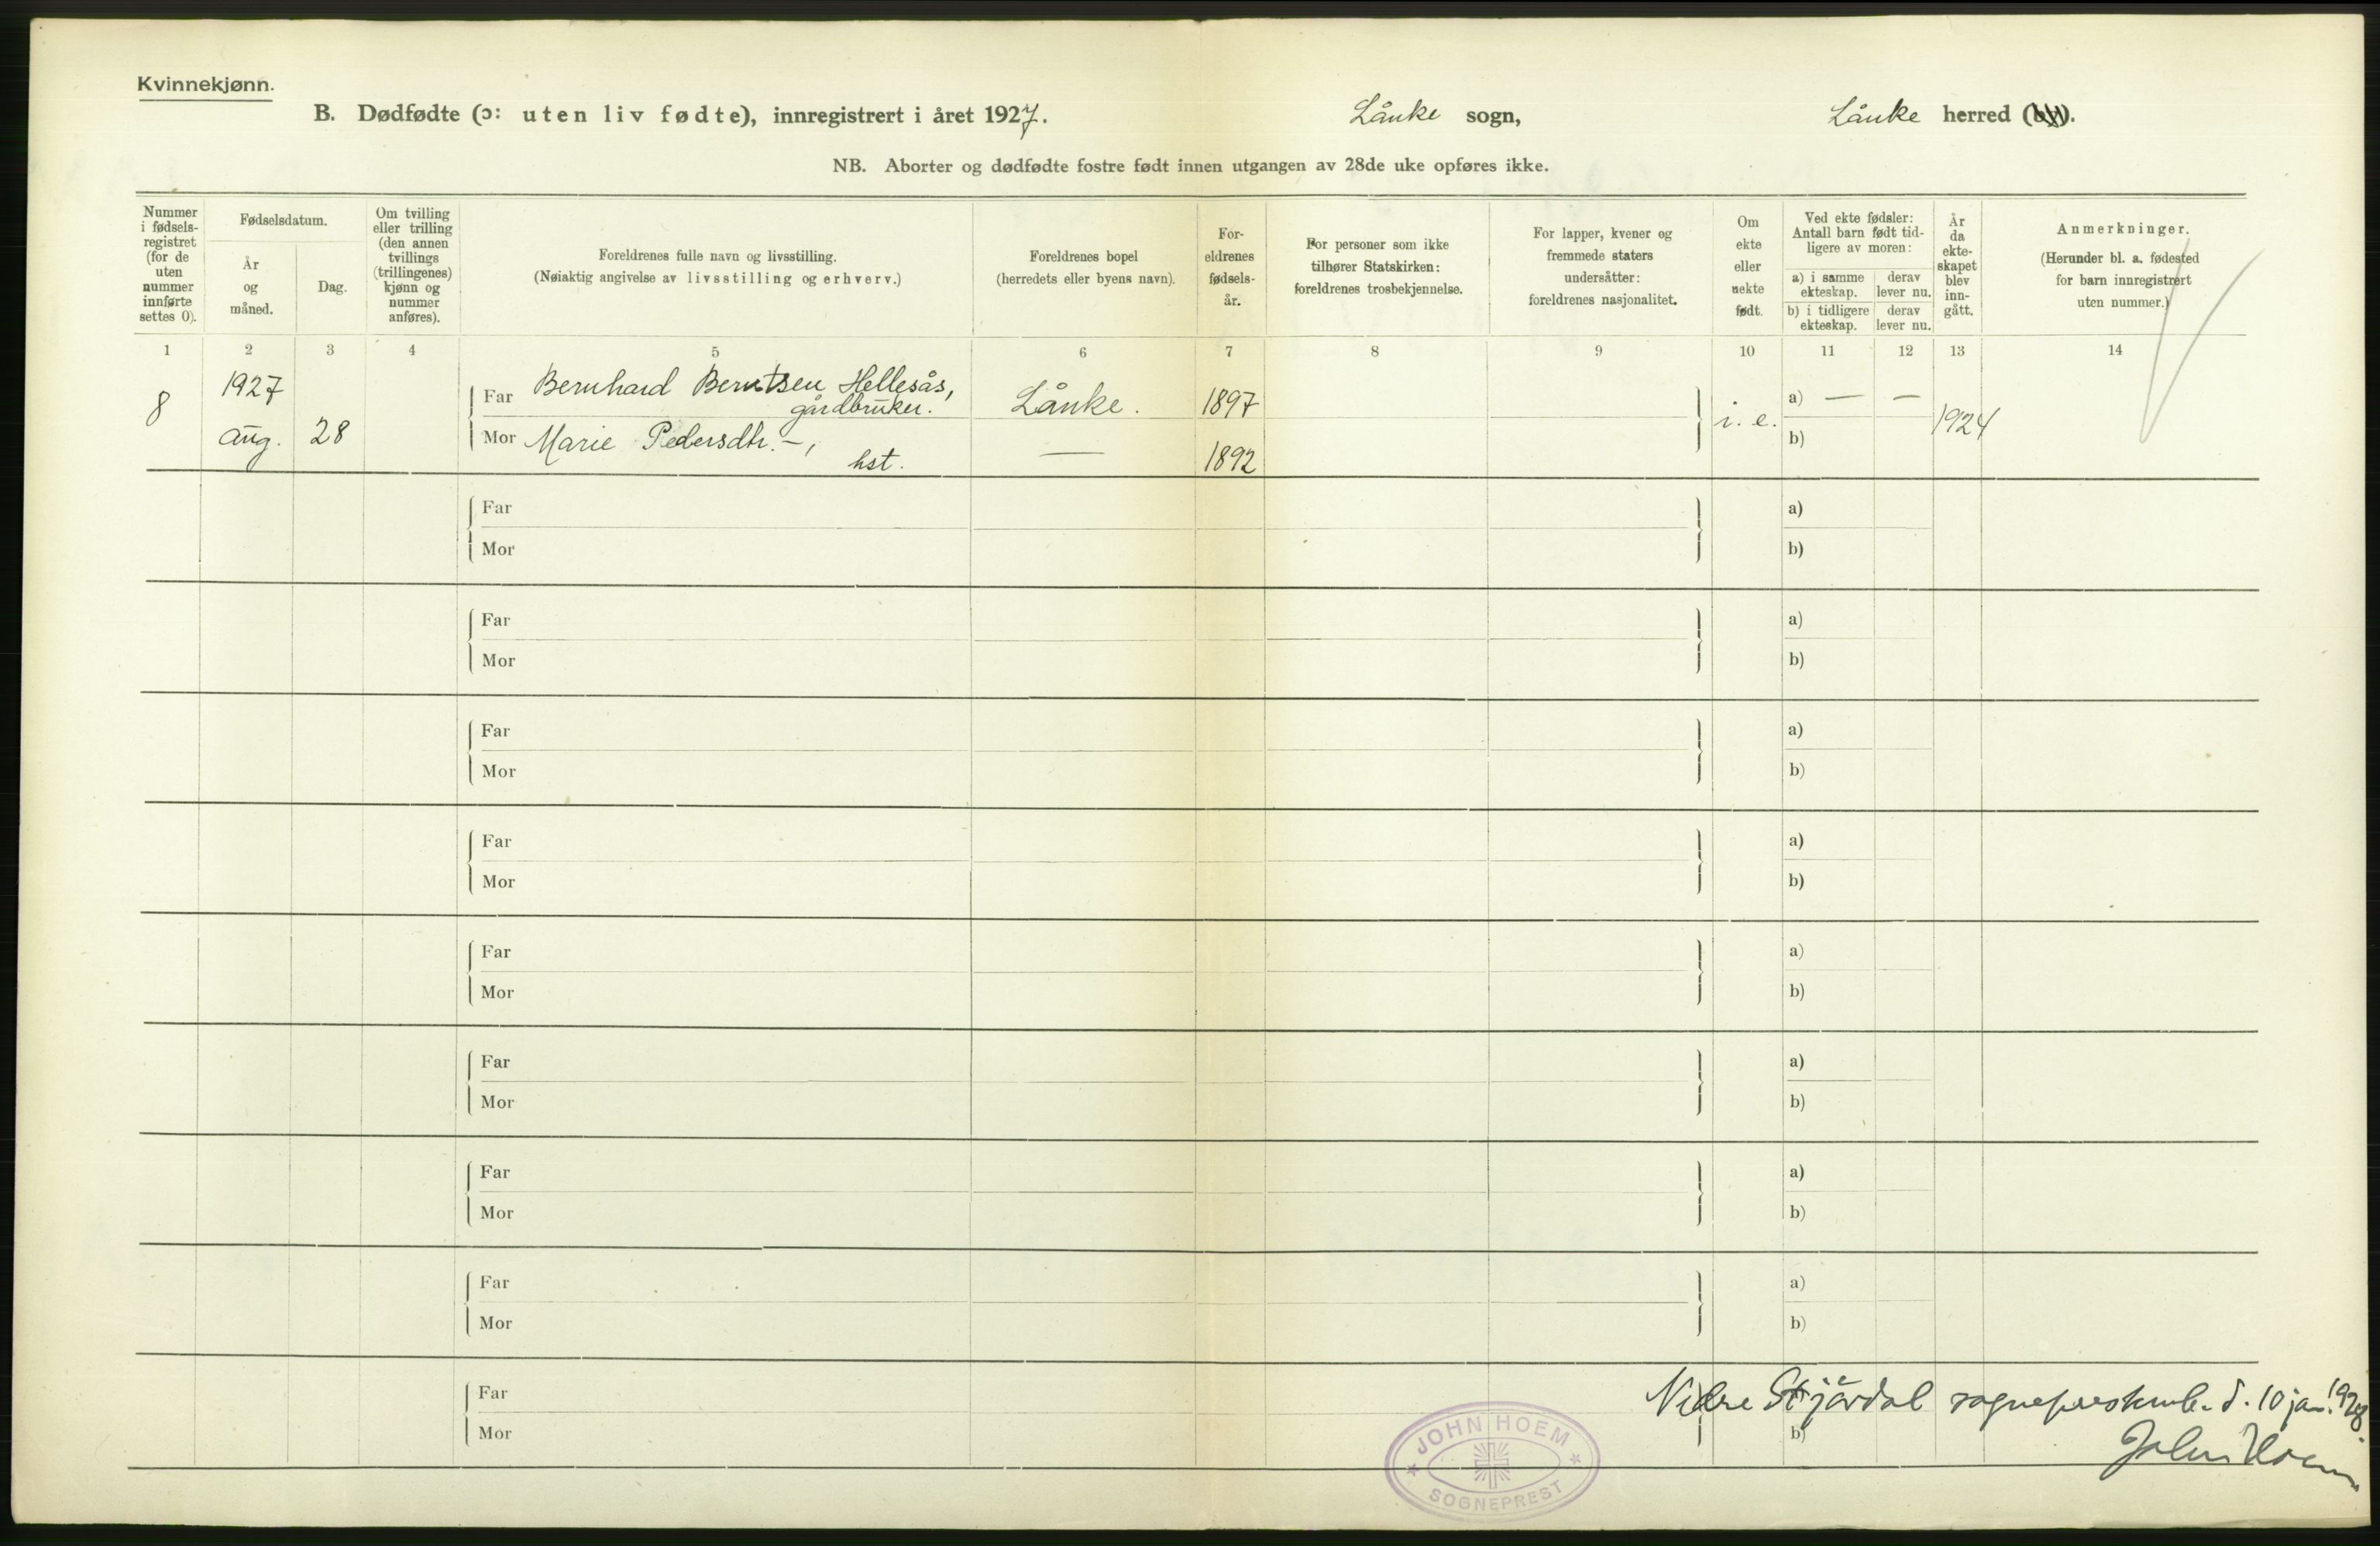 Kvinnekjønn.
B. Dødfødte (ɔ: uten liv fødte), innregistrert i året 1927. Lånke sogn, Lånke herred (by).
NB. Aborter og dødfødte fostre født innen utgangen av 28de uke opføres ikke.
Nummer
i fødsels-
registret
(for de
uten
nummer
innførte
settes 0).
Fødselsdatum.
År
og
måned.
Dag.
Om tvilling
eller trilling
(den annen
tvillings
(trillingenes)
kjønn og
nummer
anføres).
Foreldrenes fulle navn og livsstilling.
(Nøiaktig angivelse av livsstilling og erhverv.)
Foreldrenes bopel
(herredets eller byens navn).
For-
eldrenes
fødsels-
år.
For personer som ikke
tilhører Statskirken:
foreldrenes trosbekjennelse.
For lapper, kvener og
fremmede staters
undersåtter:
foreldrenes nasjonalitet.
Om
ekte
eller
uekte
født.
Ved ekte fødsler:
Antall barn født tid-
ligere av moren:
a) i samme
ekteskap.
derav
lever nu.
b) i tidligere
ekteskap.
derav
lever nu.
År
da
ekte-
skapet
blev
inn-
gått.
Anmerkninger.
(Herunder bl. a. fødested
for barn innregistrert
uten nummer.)
1 2 3 4 5 6 7 8 9 10 11 12 13 14
8
1927
aug. 28
Far Bernhard Berntsen Hellesås,
gårdbruker.
Mor Marie Pedersdtr. –,
hst.
Lånke.
—
1897
1892
i. e.
a) — —
b)
1924
Far a)
Mor b)
Far a)
Mor b)
Far a)
Mor b)
Far a)
Mor b)
Far a)
Mor b)
Far a)
Mor b)
Far a)
Mor b)
Far a)
Mor b)
Far
Mor b)
Nedre Stjørdal sogneprestemb. d. 10 jan. 1928.
John Hoem
JOHN HOEM
SOGNEPREST